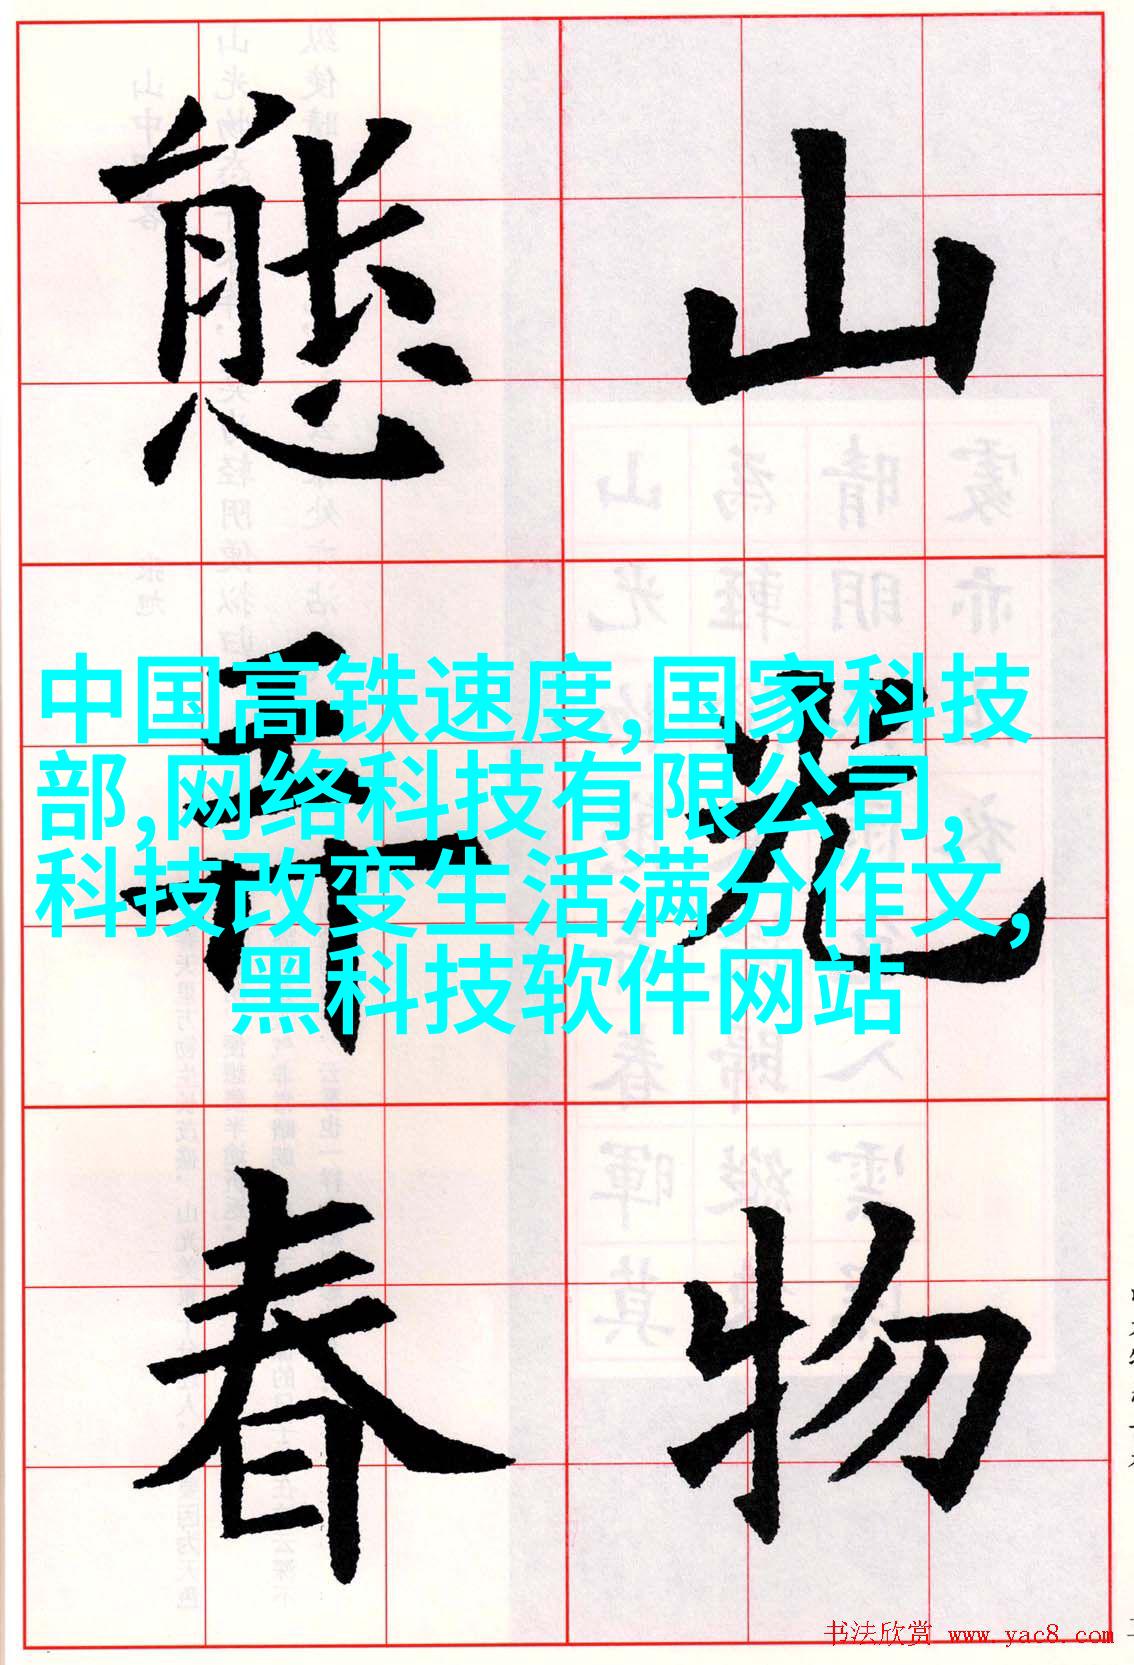 山光物
態弄春
中国高铁速度,国家科技
部,网络科技有限公司,
科技改变生活满分作文,
黑科技软件网站
书法欣赏 www.yac8.com